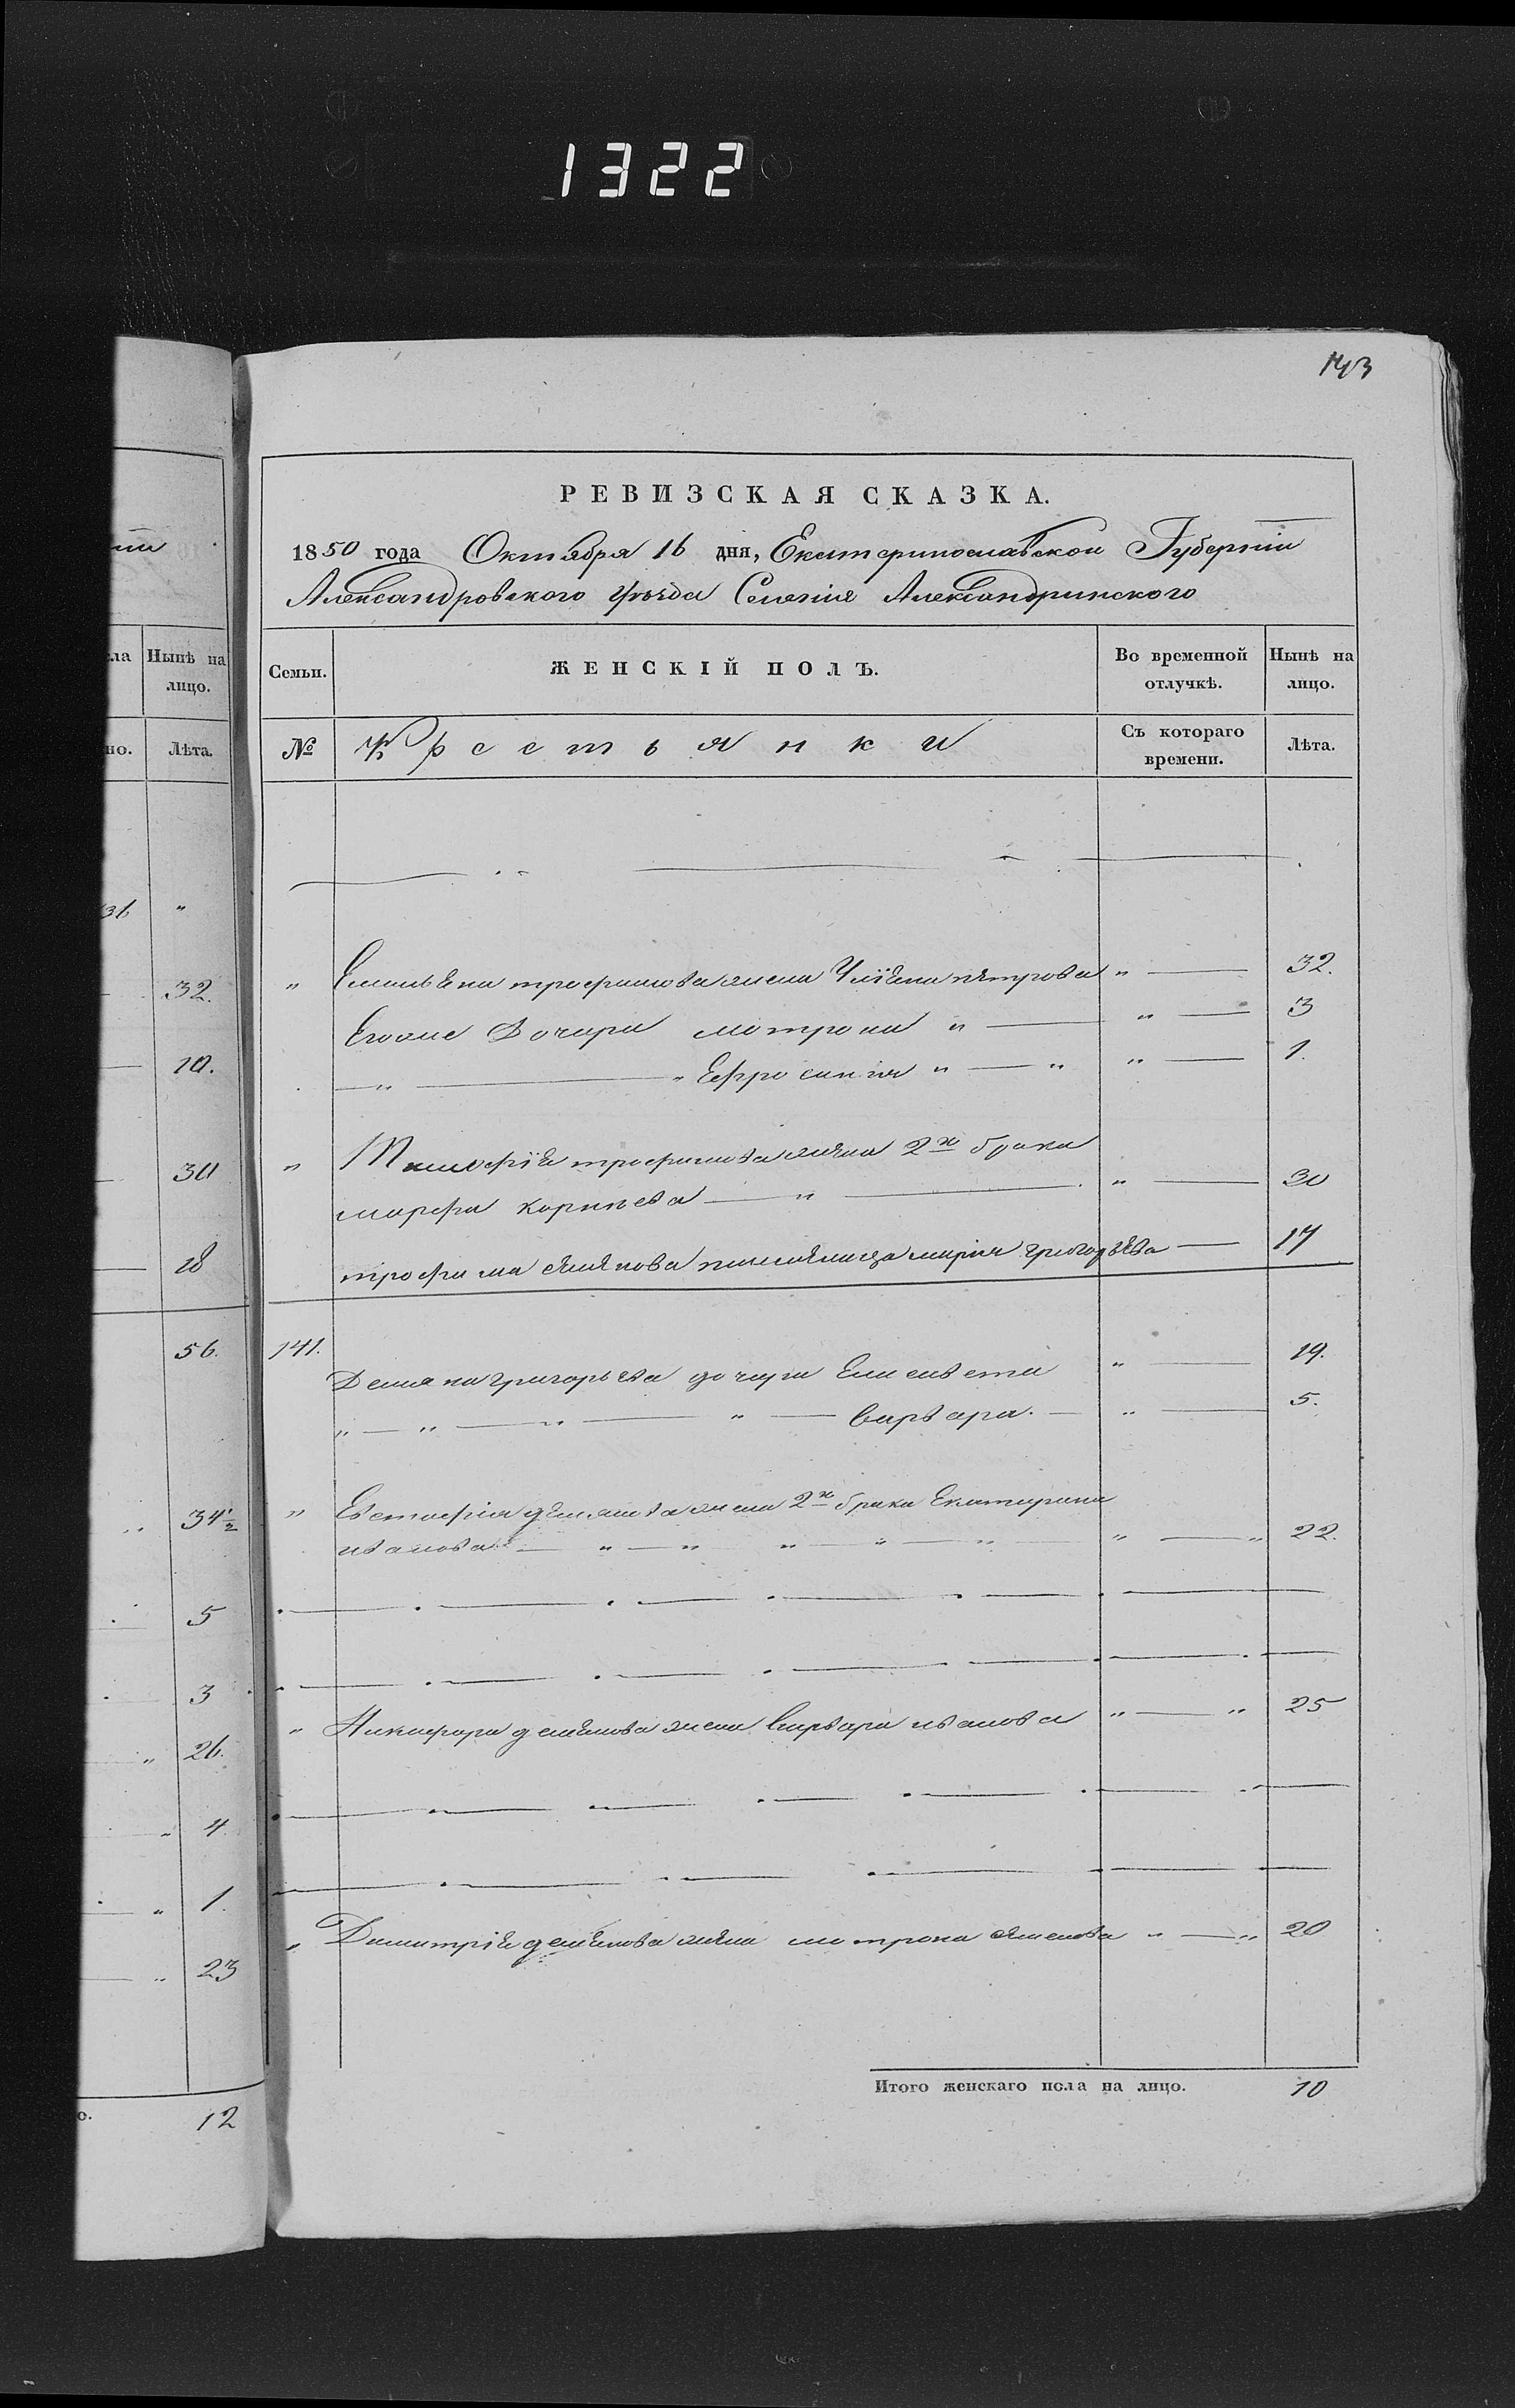 1322
143
РЕВИЗСКАЯ СКАЗКА.
1850 года Октября 16 дня, Екатеринославской Губерніи
Александровского уѣзда Селенія Александринского
ла Нынѣ на лицо.
Семьи. ЖЕНСКІЙ ПОЛЪ. Во временной отлучкѣ. Нынѣ на лицо.
но. Лѣта.
№ Крестьянки Съ котораго времени. Лѣта.
" Емельяна трофимова жена Уліяна петрова " 32.
Егоже Дочери мотрона " " 3
" " Ефросинія " " " 1.
" Тимофѣя трофимова жена 2го брака
марфа корнѣева " " 30
трофима племянница марія григорьева 17
141.
Демяна григорьева дочери Елисавета " 19.
" " " " варвара. " 5.
" Евстафія демянова жена 2го брака Екатерина
иванова " " " " " " " 22.
" Никифора демянова жена варвара иванова " " 25
" Димитрія демянова жена мотрона семенова " " 20
Итого женскаго пола на лицо. 10
36 "
32.
10.
30
18
56.
34½
5
3
26.
4
1.
23
о. 12